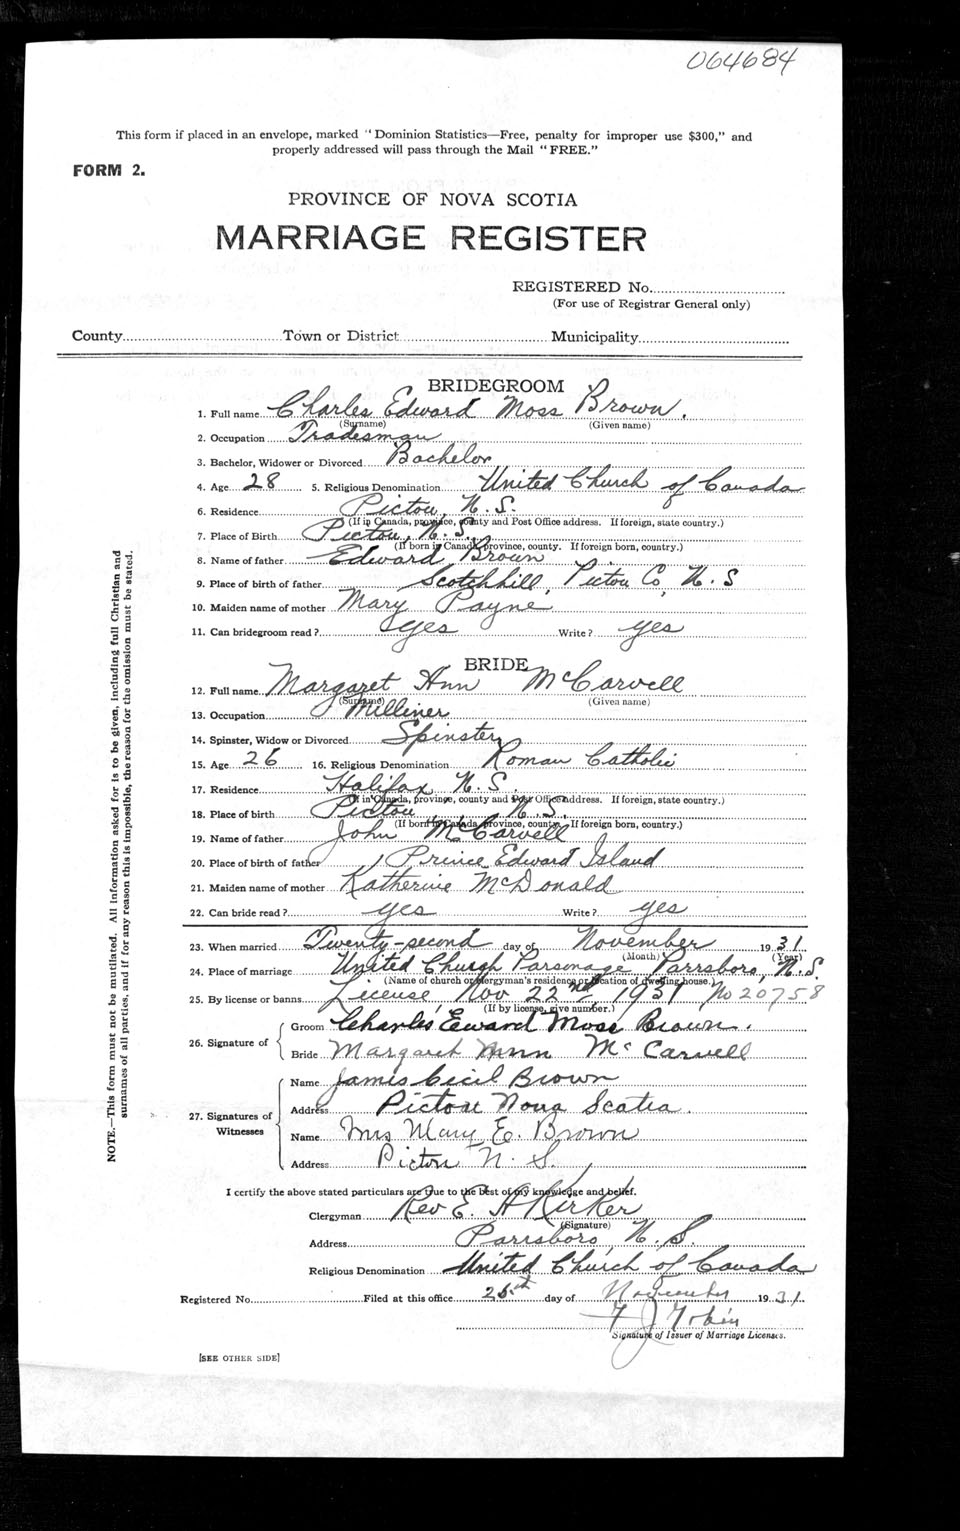 064684
This form if placed in an envelope, marked "Dominion Statistics—Free, penalty for improper use $300," and
properly addressed will pass through the Mail "FREE."
FORM 2.
PROVINCE OF NOVA SCOTIA
MARRIAGE REGISTER
REGISTERED No.
(For use of Registrar General only)
County Town or District Municipality
BRIDEGROOM
1. Full name Charles Edward Moss Brown.
(Surname) (Given name)
2. Occupation Tradesman
3. Bachelor, Widower or Divorced Bachelor
4. Age 28 5. Religious Denomination United Church of Canada
6. Residence Pictou, N.S.
(If in Canada, province, county and Post Office address. If foreign, state country.)
7. Place of Birth Pictou, N.S.
(If born in Canada, province, county. If foreign born, country.)
8. Name of father Edward Brown
9. Place of birth of father Scotchhill, Pictou Co, N.S
10. Maiden name of mother Mary Payne
11. Can bridegroom read? yes Write? yes
BRIDE
12. Full name Margaret Ann McCarvell
(Surname) (Given name)
13. Occupation Milliner
14. Spinster, Widow or Divorced Spinster
15. Age 26 16. Religious Denomination Roman Catholic
17. Residence Halifax N.S.
(If in Canada, province, county and Post Office address. If foreign, state country.)
18. Place of birth Pictou N.S.
(If born in Canada, province, county. If foreign born, country.)
19. Name of father John McCarvell
20. Place of birth of father Prince Edward Island
21. Maiden name of mother Katherine McDonald
22. Can bride read? yes Write? yes
23. When married Twenty-second day of November 1931
(Month) (Year)
24. Place of marriage United Church Parsonage Parrsboro, N.S.
(Name of church or clergyman's residence or location of dwelling house.)
25. By license or banns License, Nov 22nd, 1931 No 20758
(If by license, give number.)
26. Signature of
Groom Charles Eward Moss Brown.
Bride Margaret Ann McCarvell
27. Signatures of Witnesses
Name James Cecil Brown
Address Pictou Nova Scotia.
Name Mrs Mary E. Brown
Address Pictou N.S.
I certify the above stated particulars are true to the best of my knowledge and belief.
Clergyman Rev E. A Kirker
(Signature)
Address Parrsboro, N.S.
Religious Denomination United Church of Canada
Registered No. Filed at this office 25th day of November 1931
F J Tobin
Signature of Issuer of Marriage Licenses.
[SEE OTHER SIDE]
NOTE.—This form must not be mutilated. All information asked for is to be given, including full Christian and
surnames of all parties, and if for any reason this is impossible, the reason for the omission must be stated.